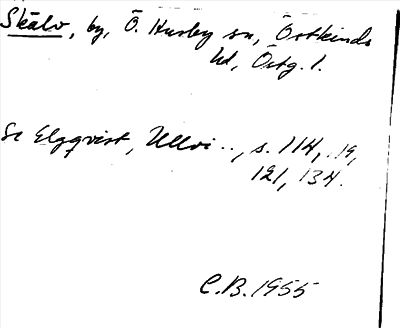 Skälv, by, Ö. Husby sn, Östkinds
hd, Östg. l.
Se Elgqvist, Ullvi .., s. 114, 119,
121, 134.
C.B. 1955